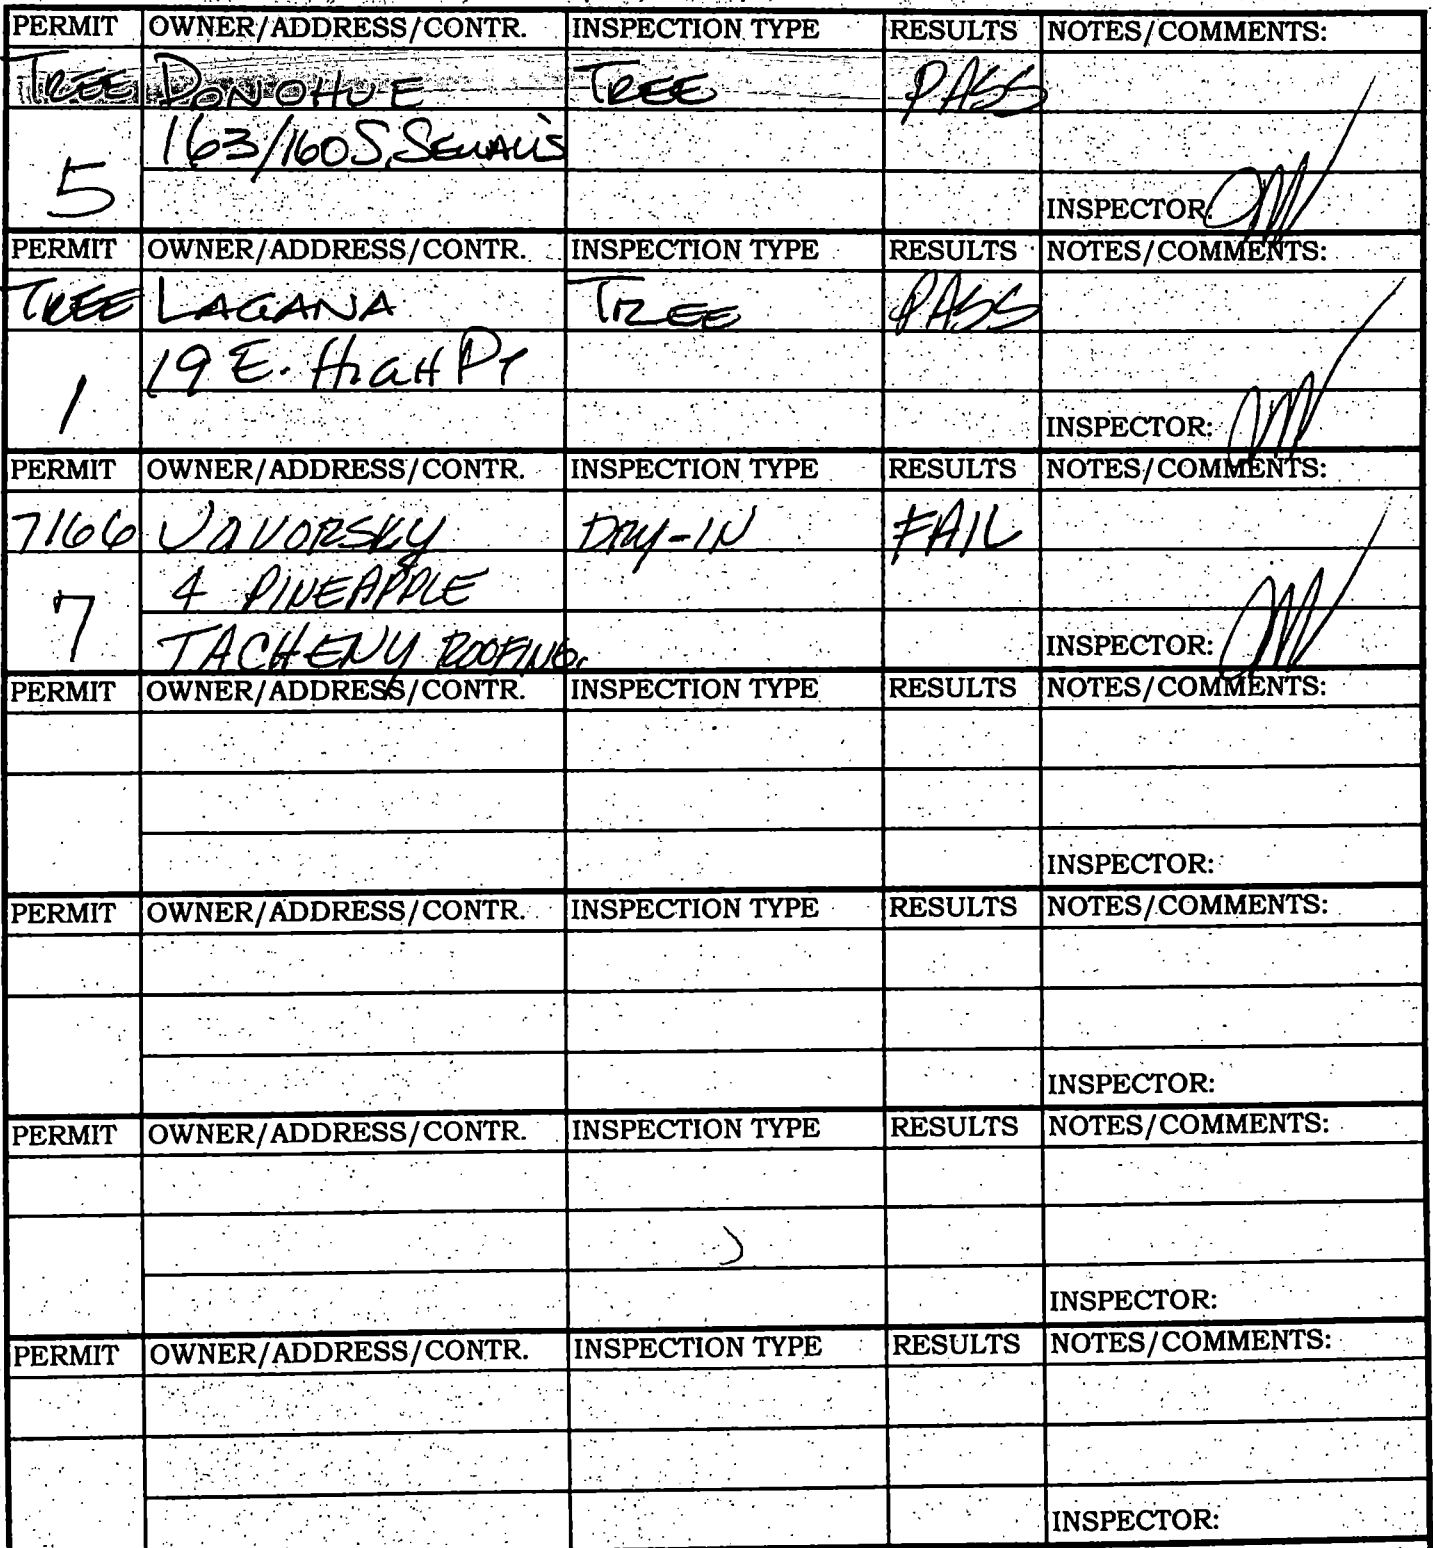 PERMIT OWNER/ADDRESS/CONTR. INSPECTION TYPE RESULTS NOTES/COMMENTS:
TREE DONOHUE TREE PASS
163/160 S.
5 INSPECTOR:
PERMIT OWNER/ADDRESS/CONTR. INSPECTION TYPE RESULTS NOTES/COMMENTS:
TREE LAGANA TREE PASS
19 E. HIGH PT
1 INSPECTOR:
PERMIT OWNER/ADDRESS/CONTR. INSPECTION TYPE RESULTS NOTES/COMMENTS:
7166 DRY-IN FAIL
4 PINEAPPLE
7 TACHENY ROOFING. INSPECTOR:
PERMIT OWNER/ADDRESS/CONTR. INSPECTION TYPE RESULTS NOTES/COMMENTS:
INSPECTOR:
PERMIT OWNER/ADDRESS/CONTR. INSPECTION TYPE RESULTS NOTES/COMMENTS:
INSPECTOR:
PERMIT OWNER/ADDRESS/CONTR. INSPECTION TYPE RESULTS NOTES/COMMENTS:
INSPECTOR:
PERMIT OWNER/ADDRESS/CONTR. INSPECTION TYPE RESULTS NOTES/COMMENTS:
INSPECTOR: